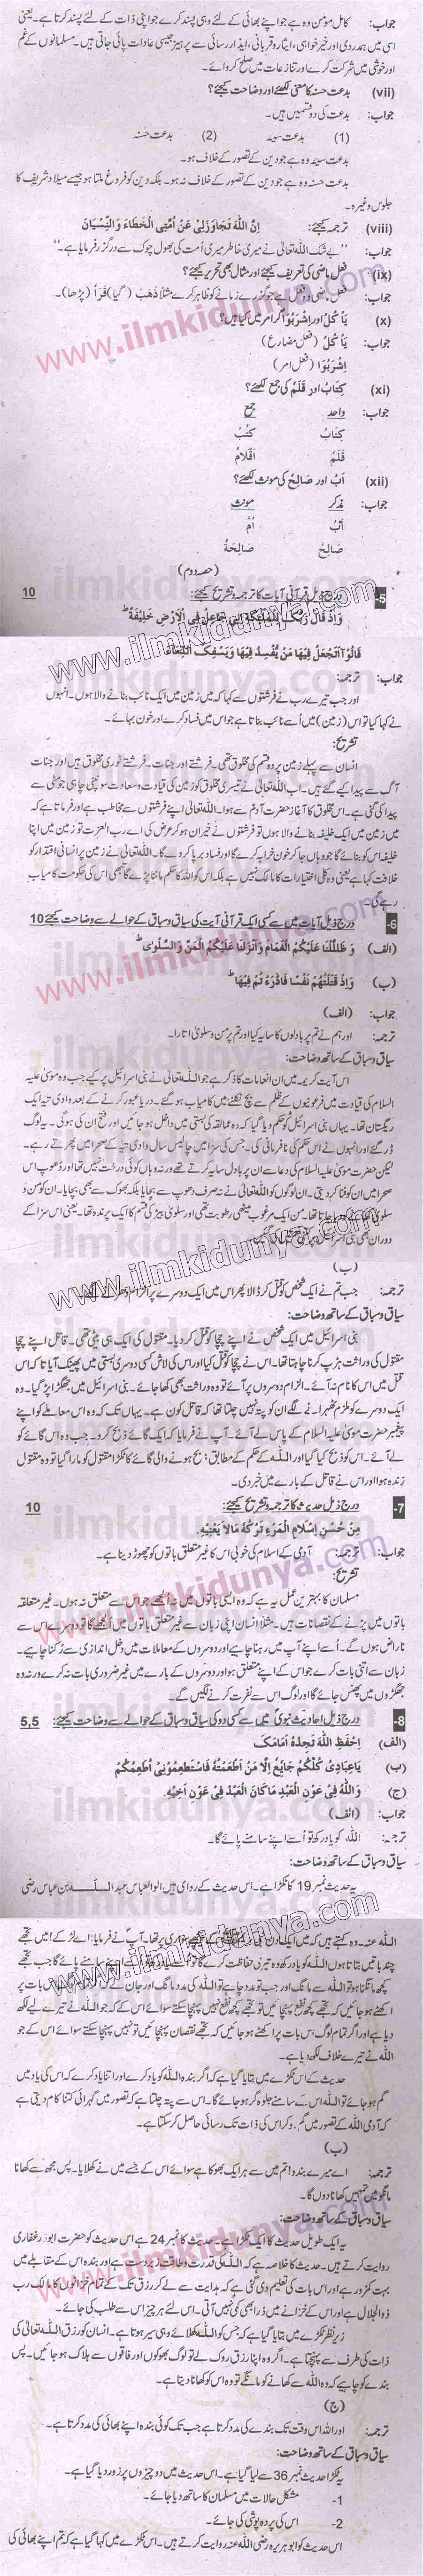 جواب: کامل مؤمن وہ ہے جو اپنے بھائی کے لئے وہی پسند کرے جو اپنی ذات کے لئے پسند کرتا ہے۔ یعنی
اس میں ہمدردی اور خیر خواہی، ایثار و قربانی، ایذا رسائی سے پرہیز جیسی عادات پائی جاتی ہیں۔ مسلمانوں کے غم
اور خوشی میں شرکت کرے اور تنازعات میں صلح کروائے۔
(vii) بدعت حسنہ کا معنی لکھئے اور وضاحت کیجئے؟
جواب: بدعت کی دو قسمیں ہیں۔
(1) بدعت سیئہ (2) بدعت حسنہ
بدعت سیئہ وہ ہے جو دین کے تصور کے خلاف ہو۔
بدعت حسنہ وہ ہے جو دین کے تصور کے خلاف نہ ہو۔ بلکہ دین کو فروغ ملتا ہو جیسے میلاد شریف کا
جلوس وغیرہ۔
(viii) ترجمہ کیجئے: اِنَّ اللّٰهَ تَجَاوَزَلِیْ عَنْ اُمَّتِی الْخَطَاءَ وَالنِّسْیَانَ
جواب: ''بے شک اللہ تعالیٰ نے میری خاطر میری اُمت کی بھول چوک سے درگزر فرمایا ہے۔''
(ix) فعل ماضی کی تعریف کیجئے اور مثال بھی تحریر کیجئے؟
جواب: فعل ماضی وہ فعل ہے جو گزرے زمانے کو ظاہر کرے مثلاً ذَهَبَ (گیا) قَرَأَ (پڑھا)۔
(x) یَأکُلُ اور اِشْرَبُوْا گرامر میں کیا ہیں؟
جواب: یَأکُلُ (فعل مضارع)
اِشْرَبُوْا (فعل امر)
(xi) کِتَابٌ اور قَلَمٌ کی جمع لکھئے؟
جواب: واحد جمع
کِتَابٌ کُتُبٌ
قَلَمٌ اَقْلَامٌ
(xii) اَبٌ اور صَالِحٌ کی مونث لکھئے؟
جواب: مذکر مونث
اَبٌ اُمٌّ
صَالِحٌ صَالِحَةٌ
(حصہ دوم)
5- درج ذیل قرآنی آیات کا ترجمہ و تشریح کیجئے: 10
وَاِذْ قَالَ رَبُّکَ لِلْمَلٰٓئِکَةِ اِنِّیْ جَاعِلٌ فِی الْاَرْضِ خَلِیْفَةً ط
قَالُوْا اَتَجْعَلُ فِیْهَا مَنْ یُّفْسِدُ فِیْهَا وَیَسْفِکُ الدِّمَآءَ
جواب: ترجمہ:
اور جب تیرے رب نے فرشتوں سے کہا کہ میں زمین میں ایک نائب بنانے والا ہوں۔ انہوں
نے کہا کیا تو اس (زمین) میں اُسے نائب بناتا ہے جو اس میں فساد کرے اور خون بہائے۔
تشریح:
انسان سے پہلے زمین پر دو قسم کی مخلوق تھی۔ فرشتے اور جنات۔ فرشتے نوری مخلوق ہیں اور جنات
آگ سے پیدا کیے گئے ہیں۔ اب اللہ تعالیٰ نے تیسری مخلوق کو زمین کی قیادت و سعادت سونپنی چاہی جو مٹی سے
پیدا کی گئی ہے۔ اس مخلوق کا آغاز حضرت آدم سے ہوا۔ اللہ تعالیٰ اپنے فرشتوں سے مخاطب ہے اور فرماتا ہے کہ
میں زمین میں ایک خلیفہ بنانے والا ہوں تو فرشتوں نے حیران ہو کر عرض کی اے رب العزت تو زمین میں اپنا
خلیفہ اس کو بنائے گا جو وہاں جا کر خون خرابہ کرے گا اور فساد برپا کرے گا۔ اللہ تعالیٰ نے زمین پر انسانی اقتدار کو
خلافت کہا ہے یعنی وہ کلی اختیارات کا مالک نہیں ہے بلکہ اس کو اللہ کا حکم ماننا پڑے گا تبھی اس کی حکومت کامیاب
رہے گی۔
6- درج ذیل آیات میں سے کسی ایک قرآنی آیت کی سیاق و سباق کے حوالے سے وضاحت کیجئے 10
(الف) وَ ظَلَّلْنَا عَلَیْکُمُ الْغَمَامَ وَاَنْزَلْنَا عَلَیْکُمُ الْمَنَّ وَالسَّلْوٰی ط
(ب) وَاِذْ قَتَلْتُمْ نَفْسًا فَادّٰرَءْ تُمْ فِیْهَا ط
جواب: (الف)
ترجمہ: اور ہم نے تم پر بادلوں کا سایہ کیا اور تم پر من و سلویٰ اتارا۔
سیاق و سباق کے ساتھ وضاحت:
اس آیت کریمہ میں ان انعامات کا ذکر ہے جو اللہ تعالیٰ نے بنی اسرائیل پر کیے جب وہ موسیٰ علیہ
السلام کی قیادت میں فرعونیوں کے ظلم سے بچ نکلنے میں کامیاب ہو گئے۔ دریا عبور کرنے کے بعد وادی تیہ ایک
ریگستان تھا۔ یہاں بنی اسرائیل کو حکم دیا گیا کہ وہ عمالقہ کی بستی میں داخل ہو جائیں اور فتح ان کی ہوگی۔ یہ لوگ
ڈر گئے اور انہوں نے اس حکم کی نافرمانی کی۔ جس کی سزا میں چالیس سال وادی تیہ کے صحرا میں پھرتے رہے۔
لیکن حضرت موسیٰ علیہ السلام کی دعا سے ان پر بادل سایہ کرتے تھے ورنہ وہاں کوئی درخت نہیں تھا اور دھوپ اس
صحرا میں ان کو فنا کر دیتی۔ ان لوگوں کو اللہ تعالیٰ نے نہ صرف دھوپ سے بچایا بلکہ بھوک سے بھی بچایا۔ ان کو من و
سلویٰ دیا جاتا تھا۔ من ایک مرغوب میٹھی رطوبت تھی اور سلویٰ بٹیر کی قسم کا ایک پرندہ تھا۔ یعنی اس سزا کے
دوران بھی بنی اسرائیل
(ب)
ترجمہ: جب تم نے ایک شخص کو قتل کر ڈالا پھر اس میں ایک دوسرے پر الزام دھرنے لگے
سیاق و سباق کے ساتھ وضاحت:
بنی اسرائیل میں ایک شخص نے اپنے چچا کو قتل کر دیا۔ مقتول کی ایک ہی بیٹی تھی۔ قاتل اپنے چچا
مقتول کی وراثت ہڑپ کرنا چاہتا تھا۔ اس نے چچا کو قتل کیا اور اس کی لاش کسی دوسری بستی میں پھینک آیا تا کہ اس
قتل میں اس کا نام نہ آئے۔ الزام دوسروں پر آئے تو وہ وراثت بھی کھا جائے۔ بنی اسرائیل میں جھگڑا پڑ گیا۔ وہ
ایک دوسرے کو ملزم ٹھہرانے لگے ان کو پتہ نہیں چلتا تھا کہ قاتل کون ہے۔ یہاں تک کہ وہ اس معاملے کو اپنے
پیغمبر حضرت موسیٰ علیہ السلام کے پاس لے آئے۔ آپ نے فرمایا کہ ایک گائے ذبح کرو۔ جب وہ اس گائے کو
لے آئے۔ اس کو ذبح کیا گیا اور اللہ کے حکم کے مطابق ذبح ہونے والی گائے کا ٹکڑا مقتول کو مارا گیا تو وہ مقتول
زندہ ہوا اور اس نے قاتل کے بارے میں خبر دی۔
7- درج ذیل حدیث کا ترجمہ و تشریح کیجئے: 10
مِنْ حُسْنِ اِسْلَامِ الْمَرْءِ تَرْکُهُ مَالَا یَعْنِیْهِ.
جواب: ترجمہ: آدمی کے اسلام کی خوبی اس کا غیر متعلق باتوں کو چھوڑ دینا ہے۔
تشریح:
مسلمان کا بہترین عمل یہ ہے کہ وہ ایسی باتوں میں نہ اُلجھے جو اس سے متعلق نہ ہوں۔ غیر متعلقہ
باتوں میں پڑنے کے نقصانات ہیں۔ مثلاً انسان اپنی زبان سے غیر متعلق باتوں میں اُلجھے گا تو دوسرے اس سے
ناراض ہوں گے۔ اُسے اپنے آپ میں رہنا چاہیے اور دوسروں کے معاملات میں دخل اندازی سے رُکنا چاہیے۔
زبان سے اتنی بات کرے جو اس کے اپنے متعلق ہو اور دوسروں کے بارے میں غیر ضروری بات نہ کرے ورنہ وہ
جھگڑوں میں پھنس جائے گا اور لوگ اس سے نفرت کرنے لگیں گے۔
8- درج ذیل احادیث نبوی میں سے کسی دو کی سیاق و سباق کے حوالے سے وضاحت کیجئے: 5,5
(الف) اِحْفَظِ اللّٰهَ تَجِدْهُ اَمَامَکَ
(ب) یَاعِبَادِیْ کُلُّکُمْ جَائِعٌ اِلَّا مَنْ اَطْعَمْتُهُ فَاسْتَطْعِمُوْنِیْ اُطْعِمْکُمْ
(ج) وَاللّٰهُ فِیْ عَوْنِ الْعَبْدِ مَاکَانَ الْعَبْدُ فِیْ عَوْنِ اَخِیْهِ.
جواب: (الف)
ترجمہ: اللہ کو یاد رکھ تو اُسے اپنے سامنے پائے گا۔
سیاق و سباق کے ساتھ وضاحت:
یہ حدیث نمبر 19 کا ٹکڑا ہے۔ اس حدیث کے راوی ہیں ابو العباس عبد اللہ بن عباس رضی
اللہ عنہ۔ وہ کہتے ہیں کہ میں ایک دن سواری پر تھا۔ آپ نے فرمایا: اے لڑکے! میں تجھے
چند باتیں بتاتا ہوں اللہ کو یاد رکھ وہ تیری حفاظت کرے گا سامنے پائے گا جب تجھے
کچھ مانگنا ہو تو اللہ سے مانگ اور جب تو مدد چاہے تو اللہ کی مدد مانگ اور جان لے کہ اگر سب لوگ اس بات پر
اکٹھے ہو جائیں کہ تجھے کچھ نفع پہنچائیں تو تجھے کچھ نفع نہیں پہنچا سکتے سوائے اس کے کہ جو اللہ نے تیرے لیے لکھ
دیا ہے اور اگر تمام لوگ اس بات پر اکٹھے ہو جائیں کہ تجھے نقصان پہنچائیں تو نہیں پہنچا سکتے سوائے اس کے جو
اللہ نے تیرے خلاف لکھ دیا ہے۔
حدیث کے اس ٹکڑے میں بتایا گیا ہے کہ اگر بندہ اللہ کو یاد کرے اور اتنا یاد کرے کہ اس کی یاد میں
گم ہو جائے تو اللہ اس کے سامنے جلوہ گر ہو جائے گا۔ اس سے پتہ چلتا ہے کہ تصور میں گہرائی کتنا کام دیتی ہے
کہ آدمی اللہ کے تصور میں گم ہو کر اس کی ذات تک رسائی حاصل کر سکتا ہے۔
(ب)
ترجمہ: اے میرے بندو! تم میں سے ہر ایک بھوکا ہے سوائے اس کے جسے میں نے کھلایا۔ پس مجھ سے کھانا
مانگو میں تمہیں کھانا دوں گا۔
سیاق و سباق کے ساتھ وضاحت:
یہ ایک طویل حدیث کا ایک ٹکڑا ہے۔ حدیث کا نمبر 24 ہے اس حدیث کو حضرت ابوذر غفاری
روایت کرتے ہیں۔ حدیث کا خلاصہ ہے کہ اللہ کی قدرت و طاقت زبردست ہے اور بندہ اس کے مقابلے میں
بہت کمزور ہے اور اس بات کی تعلیم دی گئی ہے کہ ہدایت سے لے کر رزق تک کے تمام خزانوں کا مالک رب
ذوالجلال ہے اور اس کے خزانے میں ذرا بھی کمی نہیں آتی۔ اس لئے ہر چیز اس سے طلب کی جائے۔
زیر نظر ٹکڑے میں بتایا گیا ہے کہ جس کو اللہ کھلائے وہی سیر ہوتا ہے۔ انسان کو رزق اللہ تعالیٰ کی
ذات کی طرف سے پہنچتا ہے۔ اگر وہ اپنا رزق روک لے تو لوگ بھوکوں اور فاقوں سے ہلاک ہو جائیں۔ پس
بندے کو چاہیے کہ وہ اللہ سے کھانے کو مانگے تو وہ اس کو کھانا دیتا ہے۔
(ج)
ترجمہ: اور اللہ اس وقت تک بندے کی مدد کرتا ہے جب تک کوئی بندہ اپنے بھائی کی مدد کرتا ہے۔
سیاق و سباق کے ساتھ وضاحت:
یہ ٹکڑا حدیث نمبر 36 سے لیا گیا ہے۔ اس حدیث میں دو چیزوں پر زور دیا گیا ہے۔
1- مشکل حالات میں مسلمان کا ساتھ دیا جائے۔
2- اس کی پردہ پوشی کی جائے۔
اس حدیث کو ابو ہریرہ رضی اللہ عنہ روایت کرتے ہیں۔ اس ٹکڑے میں کہا گیا ہے کہ تم اپنے بھائی کی
www.ilmkidunya.com